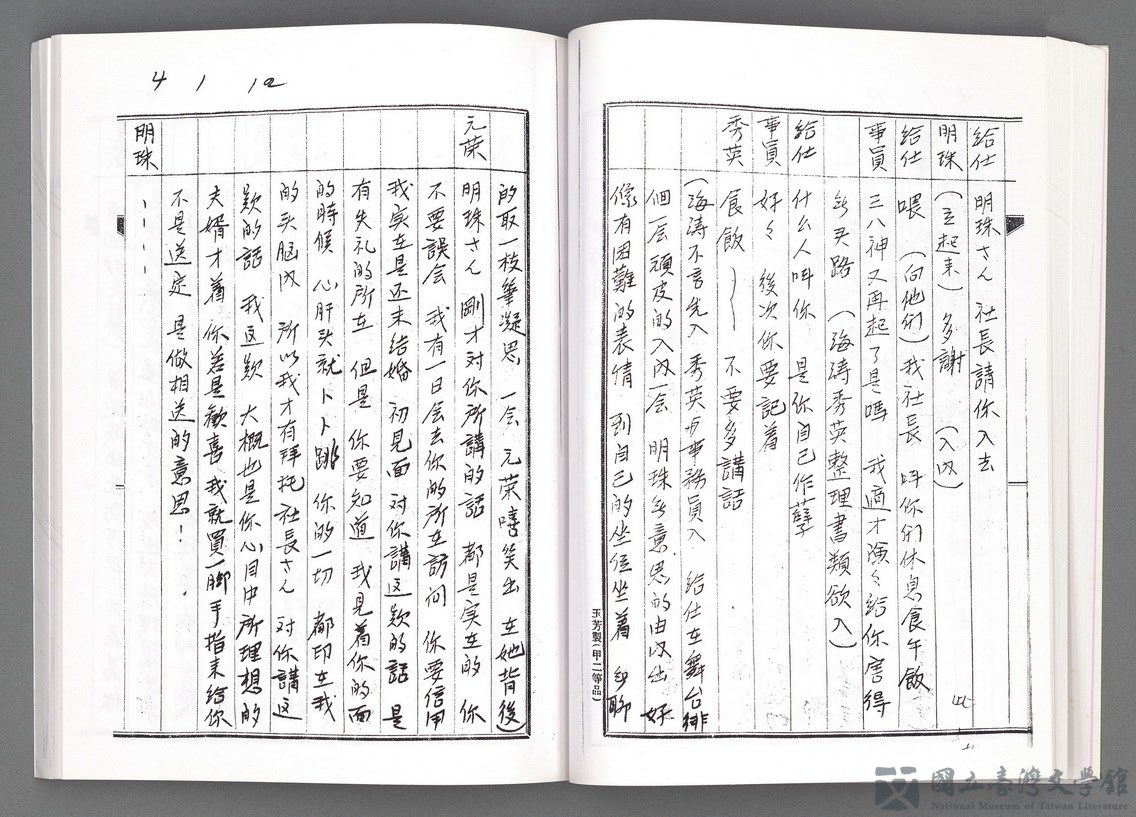 給仕 明珠さん 社長請你入去
明珠 (立起来) 多謝 (入内)
給仕 喂 (向他们) 我社長 叫你们休息食午飯
事員 三八神又再起了是嗎 我適才険々給你害得
無尹路 (海涛秀英整理書類欲入)
給仕 什么人叫你 是你自己作孽
事員 好々 後次你要記着
秀英 食飯 不要多講話
(海涛不言先入 秀英与事務員入 給仕在舞台徘
個一层頑皮的入内一会 明珠無意思的由内出 好
像有困難的表情 到自己的坐位坐着 無聊
玉芳製(甲二等品)
4 1 12
的取一枝筆凝思 一会 元荣嘻笑出 在她背後)
元荣 明珠さん 剛才对你所講的話 都是実在的 你
不要誤会 我有一日会去你的所在訪问 你要信用
我実在是还未结婚 初見面 对你講这欵的話 是
有失礼的所在 但是 你要知道 我見着你的面
的時候 心肝头就卜卜跳 你的一切 都印在我
的头脑内 所以我才有拜托社長さん 对你講这
欵的話 我这欵 大概也是你心目中所理想的
夫婿才着 你若是歡喜 我就買一脚手指来給你
不是送定 是做相送的意思！
明珠 、、、、
國立臺灣文學館
National Museum of Taiwan Literature